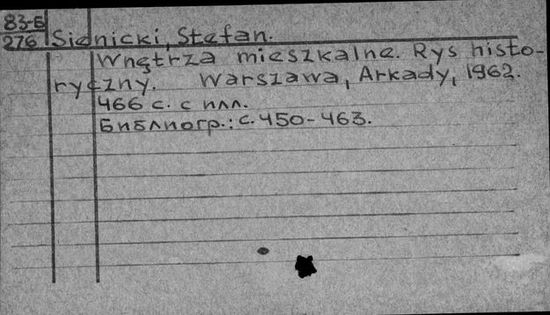 83-5
276 Sienicki, Stefan.
Wnętrza mieszkalne. Rys histo-
ryczny. Warszawa, Arkady, 1962.
466 с. с илл.
Библиогр.: с. 450-463.